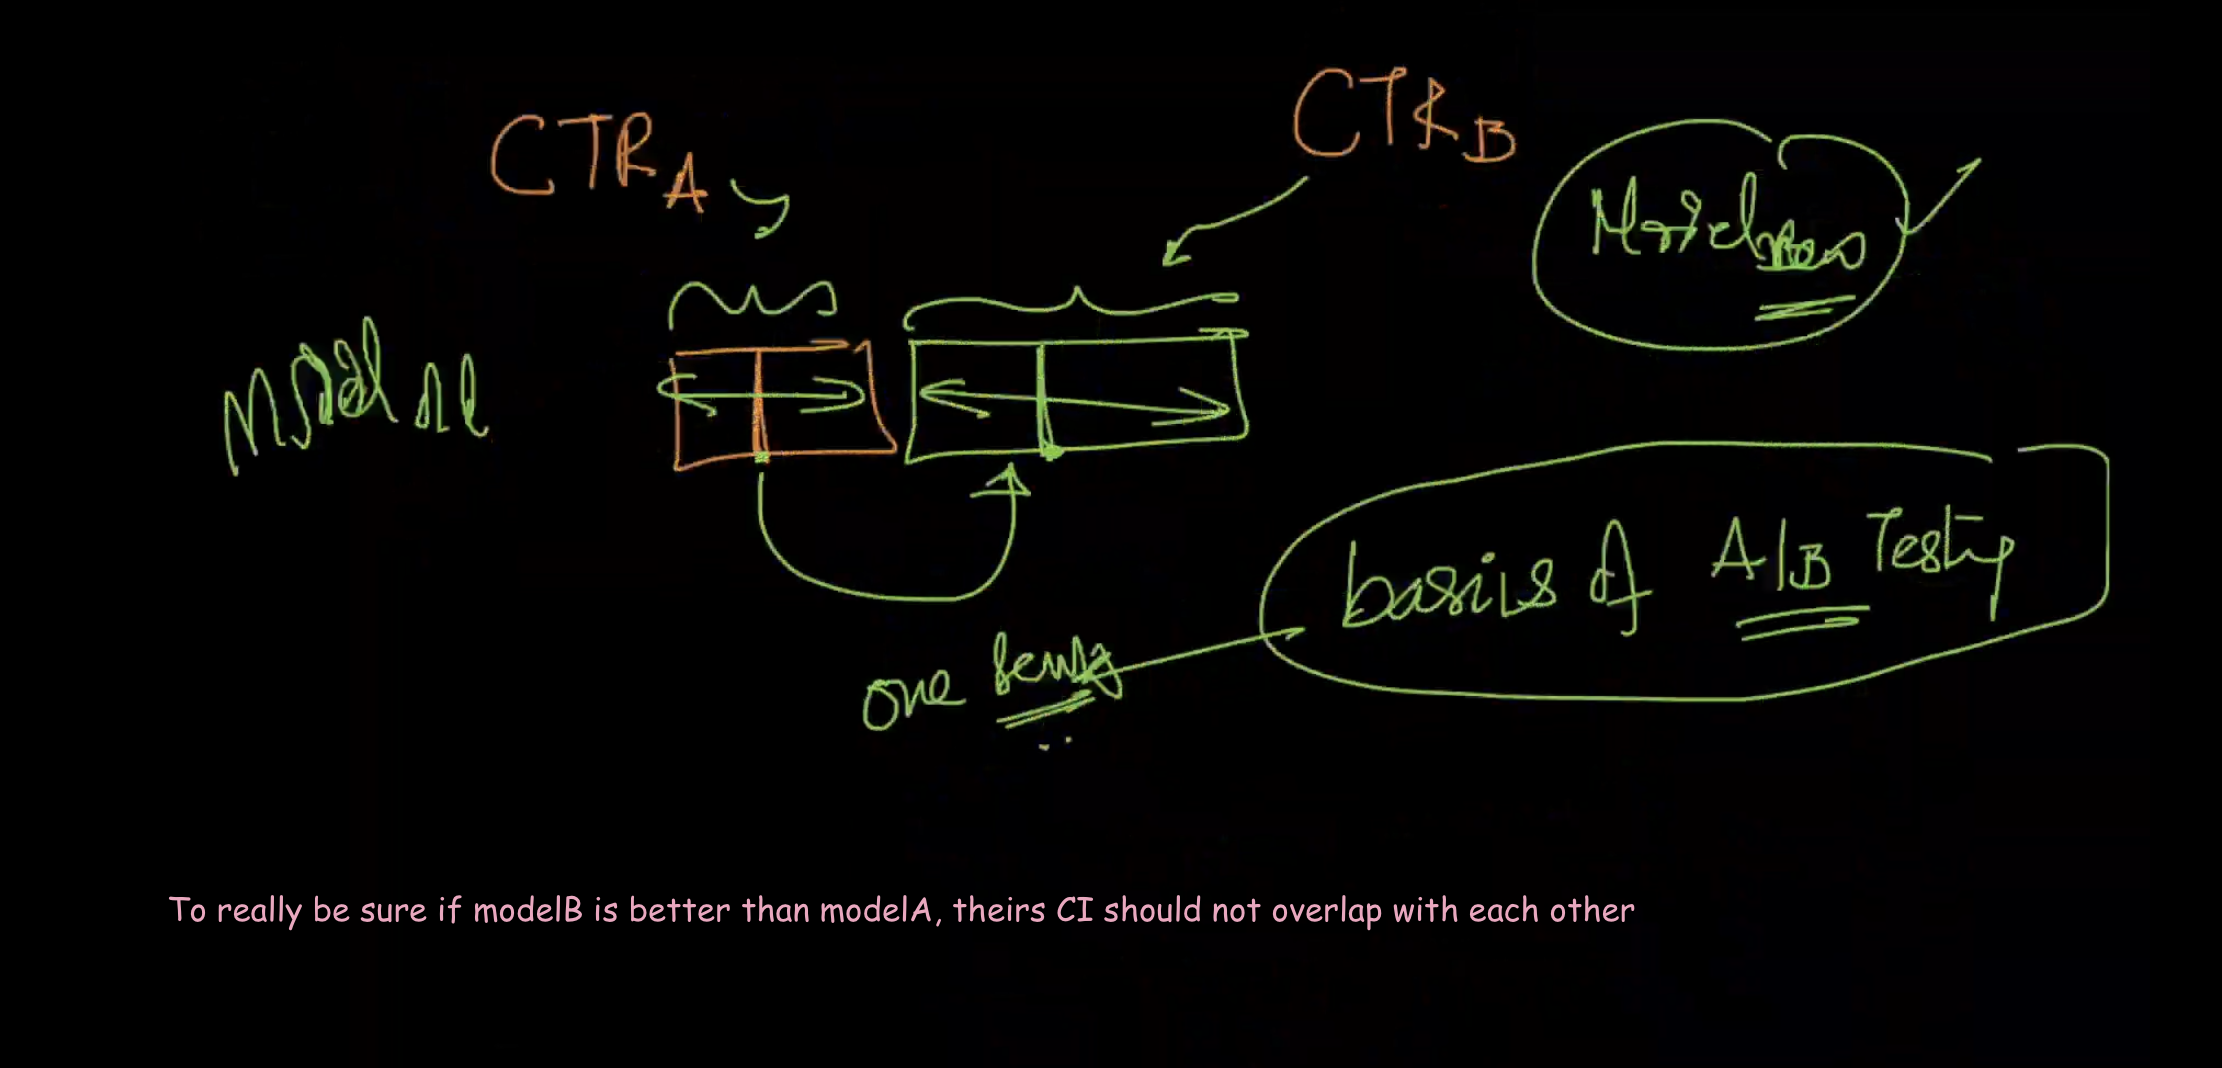 CTR A
CTR B
Model new
Model
basics of A/B Testing
one
To really be sure if modelB is better than modelA, theirs CI should not overlap with each other